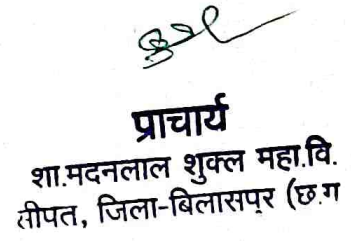 प्राचार्य
शा.मदनलाल शुक्ल महा.वि.
सीपत, जिला-बिलासपुर (छ.ग